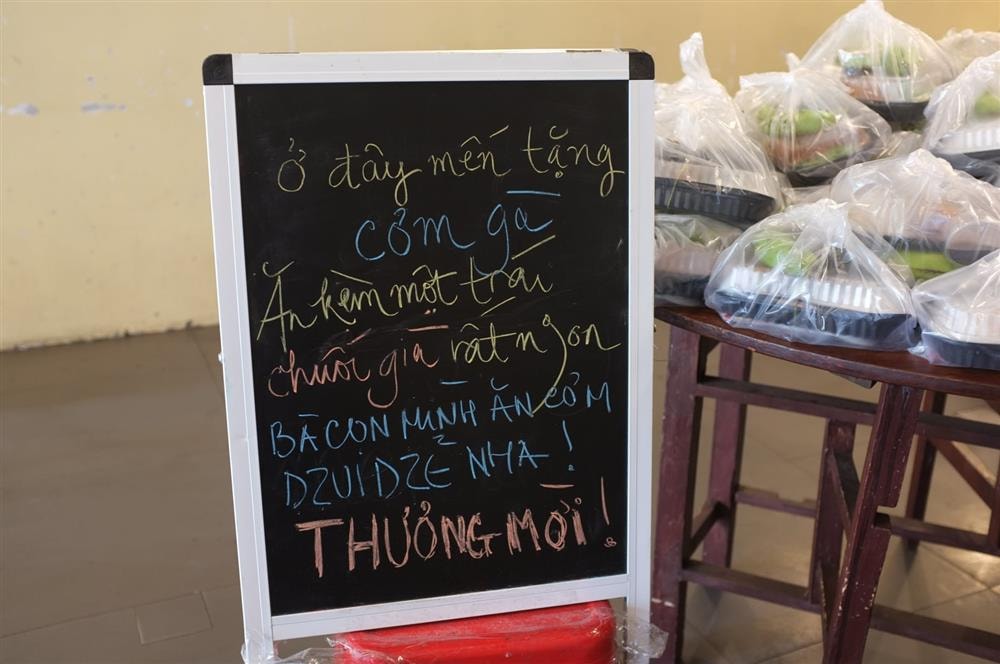 Ở đây mến tặng
cơm gà
Ăn kèm một trái
chuối già rất ngon
BÀ CON MÌNH ĂN CƠM
DZUI DZẺ NHA !
THƯỞNG MỜI !